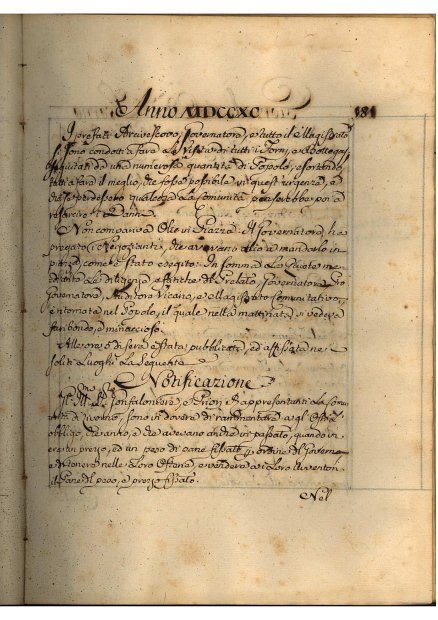 Anno MDCCXC 181
I prefati Arcivescovo, Governatore, e tutto il Magistrato
si sono condotti a fare la Visita di tutti i Forni, e Botteghe
seguitati da una numerosa quantità di Popolo, esortando
tutti a fare il meglio, che fosse possibile in quest'urgenza, e
che se perdessero qualcosa la Comunità penserebbe poi a
risarcire il Danno.
Non compariva Olio in Piazza. Il Governatore ha
pregato i Negozianti, che avevano olio a mandarlo in
piazza, come è stato eseguito. In somma la Quiete me-
diante la diligenza, e fatiche del Prelato, Governatore, Pro
Governatore, Auditore Vicario, e Magistrato Comunitativo,
è tornata nel Popolo, il quale nella mattinata si vedeva
furibondo, e minaccioso.
Alle ore 5 di sera è stata pubblicata, ed affissa ne'
soliti Luoghi la seguente
Notificazione
Gl' Ill.mi SS.ri Gonfaloniere, e Priori Rappresentanti la Comu-
nità di Livorno, sono in dovere di rammentare agl' Osti
obbligo, che anno, e che avevano anche in passato, quando in
ere un prezzo, ed un peso di pane fissato p ordine del Governo
di tenere nelle loro Osterie, e vendere ai loro Avventori
il Pane del peso, e prezzo fissato.
Nel